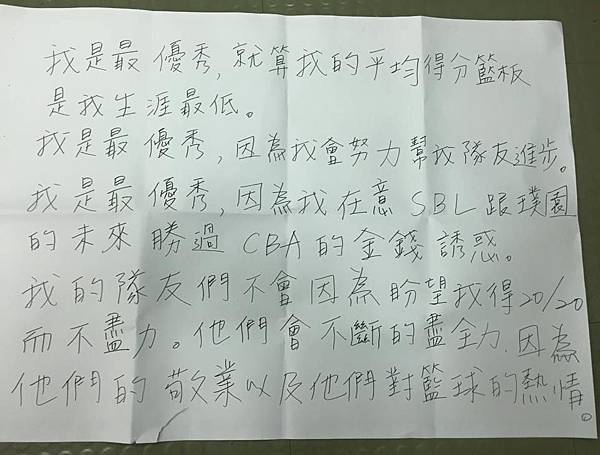 我是最優秀,就算我的平均得分籃板
是我生涯最低。
我是最優秀,因為我會努力幫我隊友進步。
我是最優秀,因為我在意SBL跟璞園
的未來勝過CBA的金錢誘惑。
我的隊友們不會因為盼望我得20/20
而不盡力。他們會不斷的盡全力,因為
他們的敬業以及他們對籃球的熱情。